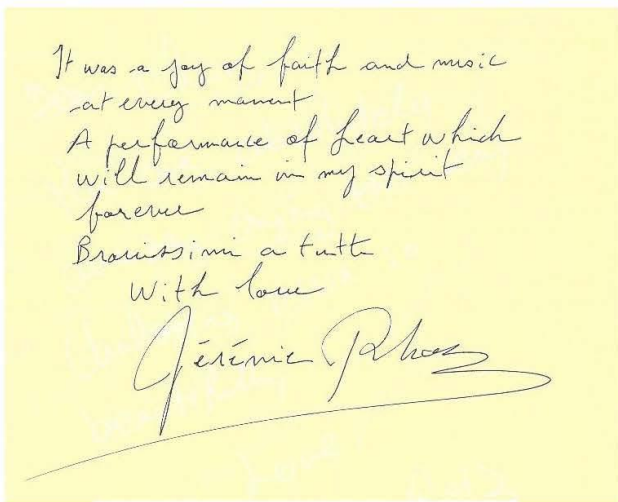 It was a joy of faith and music
at every moment
A performance of heart which
will remain in my spirit
forever
Bravissimi a tutti
With love
Jérémie Rhorer